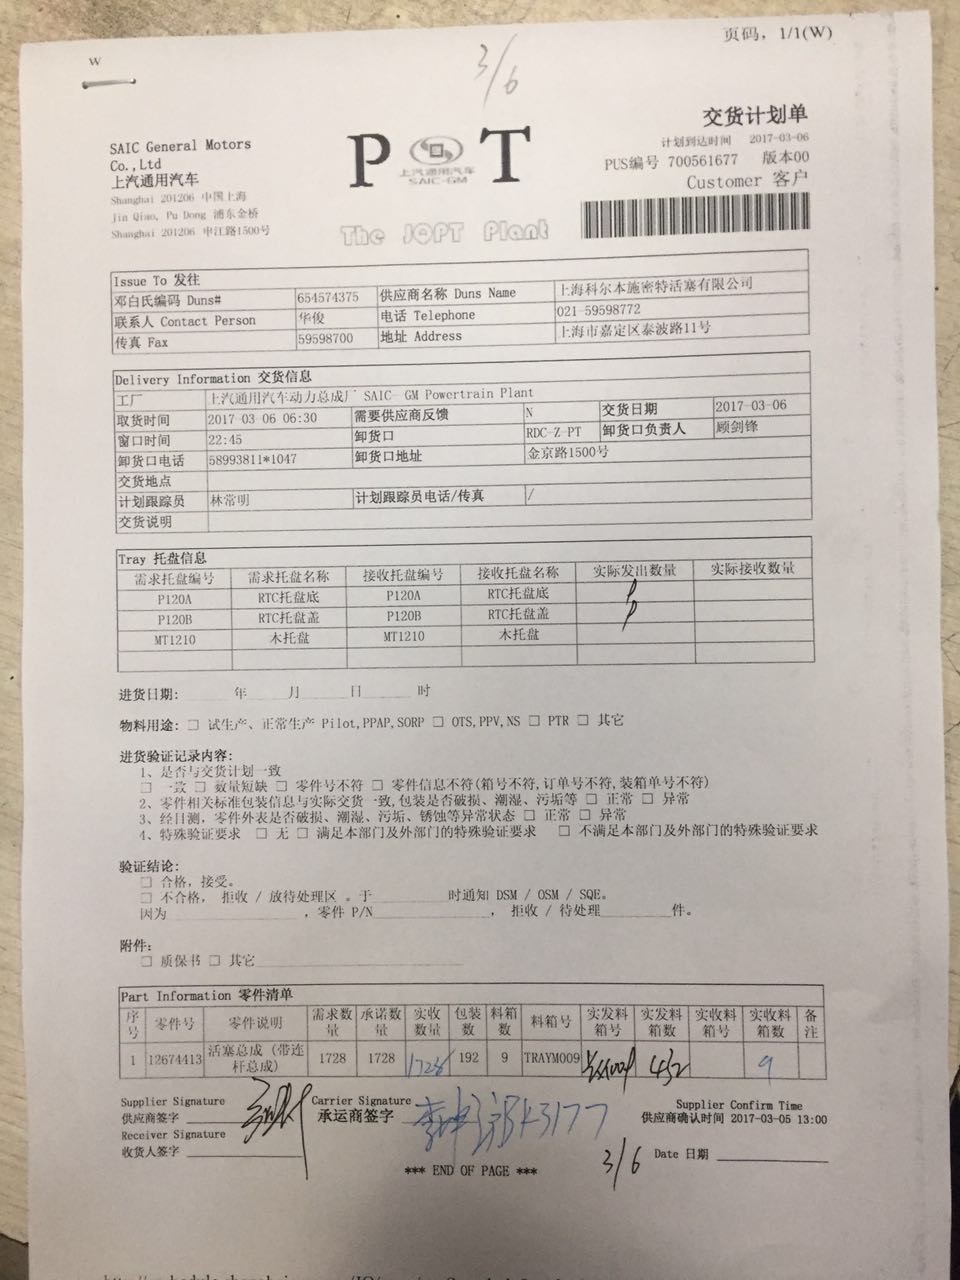 页码，1/1(W)
W
3/6
交货计划单
计划到达时间 2017-03-06
PUS编号 700561677 版本00
Customer 客户
SAIC General Motors
Co.,Ltd
上汽通用汽车
Shanghai 201206 中国上海
Jin Qiao, Pu Dong 浦东金桥
Shanghai 201206 申江路1500号
P 上汽通用汽车 SAIC-GM T
The JQPT Plant
Issue To 发往
邓白氏编码 Duns# 654574375 供应商名称 Duns Name 上海科尔本施密特活塞有限公司
联系人 Contact Person 华俊 电话 Telephone 021-59598772
传真 Fax 59598700 地址 Address 上海市嘉定区泰波路11号
Delivery Information 交货信息
工厂 上汽通用汽车动力总成厂 SAIC- GM Powertrain Plant
取货时间 2017-03-06 06:30 需要供应商反馈 N 交货日期 2017-03-06
窗口时间 22:45 卸货口 RDC-Z-PT 卸货口负责人 顾剑锋
卸货口电话 58993811*1047 卸货口地址 金京路1500号
交货地点
计划跟踪员 林常明 计划跟踪员电话/传真 /
交货说明
Tray 托盘信息
需求托盘编号 需求托盘名称 接收托盘编号 接收托盘名称 实际发出数量 实际接收数量
P120A RTC托盘底 P120A RTC托盘底
P120B RTC托盘盖 P120B RTC托盘盖
MT1210 木托盘 MT1210 木托盘
进货日期: 年 月 日 时
物料用途: □ 试生产、正常生产 Pilot,PPAP,SORP □ OTS,PPV,NS □ PTR □ 其它
进货验证记录内容:
1、是否与交货计划一致
□ 一致 □ 数量短缺 □ 零件号不符 □ 零件信息不符(箱号不符,订单号不符,装箱单号不符)
2、零件相关标准包装信息与实际交货一致,包装是否破损、潮湿、污垢等 □ 正常 □ 异常
3、经目测，零件外表是否破损、潮湿、污垢、锈蚀等异常状态 □ 正常 □ 异常
4、特殊验证要求 □ 无 □ 满足本部门及外部门的特殊验证要求 □ 不满足本部门及外部门的特殊验证要求
验证结论:
□ 合格，接受。
□ 不合格， 拒收 / 放待处理区 。于 时通知 DSM / OSM / SQE。
因为 ，零件 P/N ， 拒收 / 待处理 件。
附件:
□ 质保书 □ 其它
Part Information 零件清单
序号 零件号 零件说明 需求数量 承诺数量 实收数量 包装数 料箱数 料箱号 实发料箱号 实发料箱数 实收料箱号 实收料箱数 备注
1 12674413 活塞总成（带连杆总成） 1728 1728 1728 192 9 TRAYM009 432 9
Supplier Signature
供应商签字
Carrier Signature
承运商签字
Supplier Confirm Time
供应商确认时间 2017-03-05 13:00
Receiver Signature
收货人签字
3/6 Date 日期
*** END OF PAGE ***